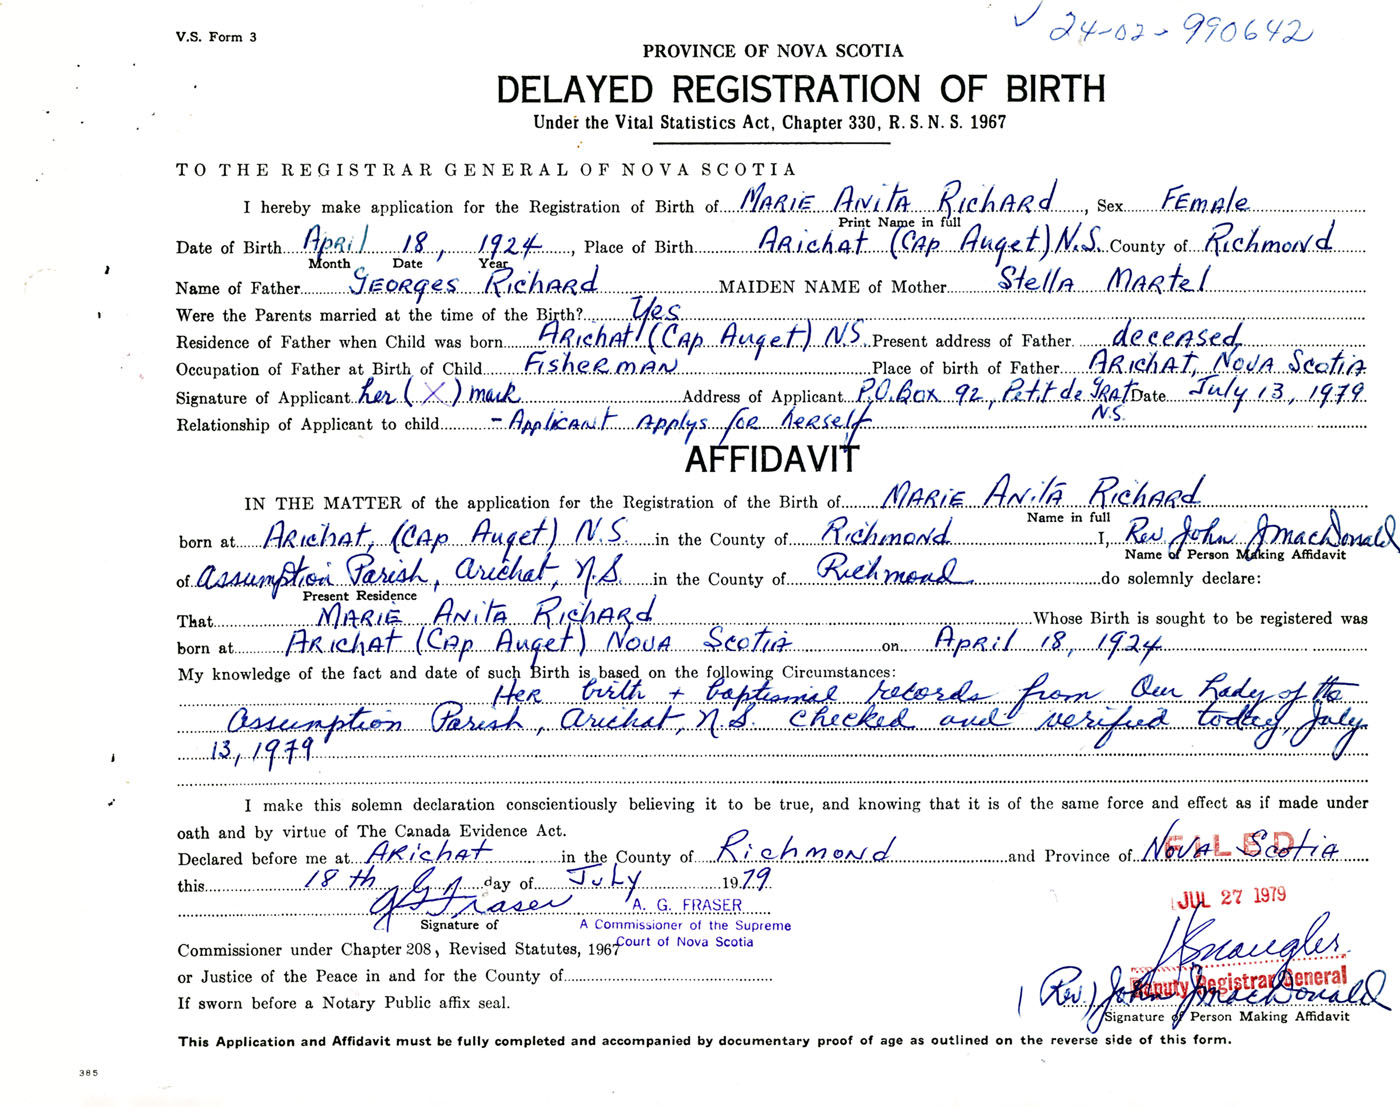 V.S. Form 3
24-02-990642
PROVINCE OF NOVA SCOTIA
DELAYED REGISTRATION OF BIRTH
Under the Vital Statistics Act, Chapter 330, R.S.N.S. 1967
TO THE REGISTRAR GENERAL OF NOVA SCOTIA
I hereby make application for the Registration of Birth of MARIE ANITA RICHARD, Sex FEMALE
Print Name in full
Date of Birth April 18, 1924, Place of Birth ARichAT (CAP Auget) N.S. County of Richmond
Month Date Year
Name of Father GEORGES RichARD MAIDEN NAME of Mother Stella MARTEL
Were the Parents married at the time of the Birth? Yes
Residence of Father when Child was born ARichAT (CAP Auget) N.S. Present address of Father deceased
Occupation of Father at Birth of Child FishERMAN Place of birth of Father ARichAT, NOVA Scotia
Signature of Applicant her (X) mark Address of Applicant P.O. Box 92, Petit de GRAT Date July 13, 1979
N.S.
Relationship of Applicant to child - Applicant applys for herself
AFFIDAVIT
IN THE MATTER of the application for the Registration of the Birth of MARIE ANITA RichARD
Name in full
born at ARichAT, (CAP Auget) N.S. in the County of Richmond I, Rev. John J MacDonald
Name of Person Making Affidavit
of Assumption Parish, Arichat, N.S. in the County of Richmond do solemnly declare:
Present Residence
That MARIE ANITA RichARD Whose Birth is sought to be registered was
born at ARichAT (CAP Auget) NOVA Scotia on April 18, 1924
My knowledge of the fact and date of such Birth is based on the following Circumstances:
Her birth + baptismal records from Our Lady of the
Assumption Parish, Arichat, N.S. checked and verified today, July
13, 1979
I make this solemn declaration conscientiously believing it to be true, and knowing that it is of the same force and effect as if made under
oath and by virtue of The Canada Evidence Act.
Declared before me at ARichAT in the County of Richmond and Province of NOVA Scotia
FILED
this 18th day of July 1979
JUL 27 1979
A G Fraser A. G. FRASER
Signature of A Commissioner of the Supreme
Court of Nova Scotia
Commissioner under Chapter 208, Revised Statutes, 1967
or Justice of the Peace in and for the County of
Deputy Registrar General
(Rev.) John J MacDonald
If sworn before a Notary Public affix seal.
Signature of Person Making Affidavit
This Application and Affidavit must be fully completed and accompanied by documentary proof of age as outlined on the reverse side of this form.
385